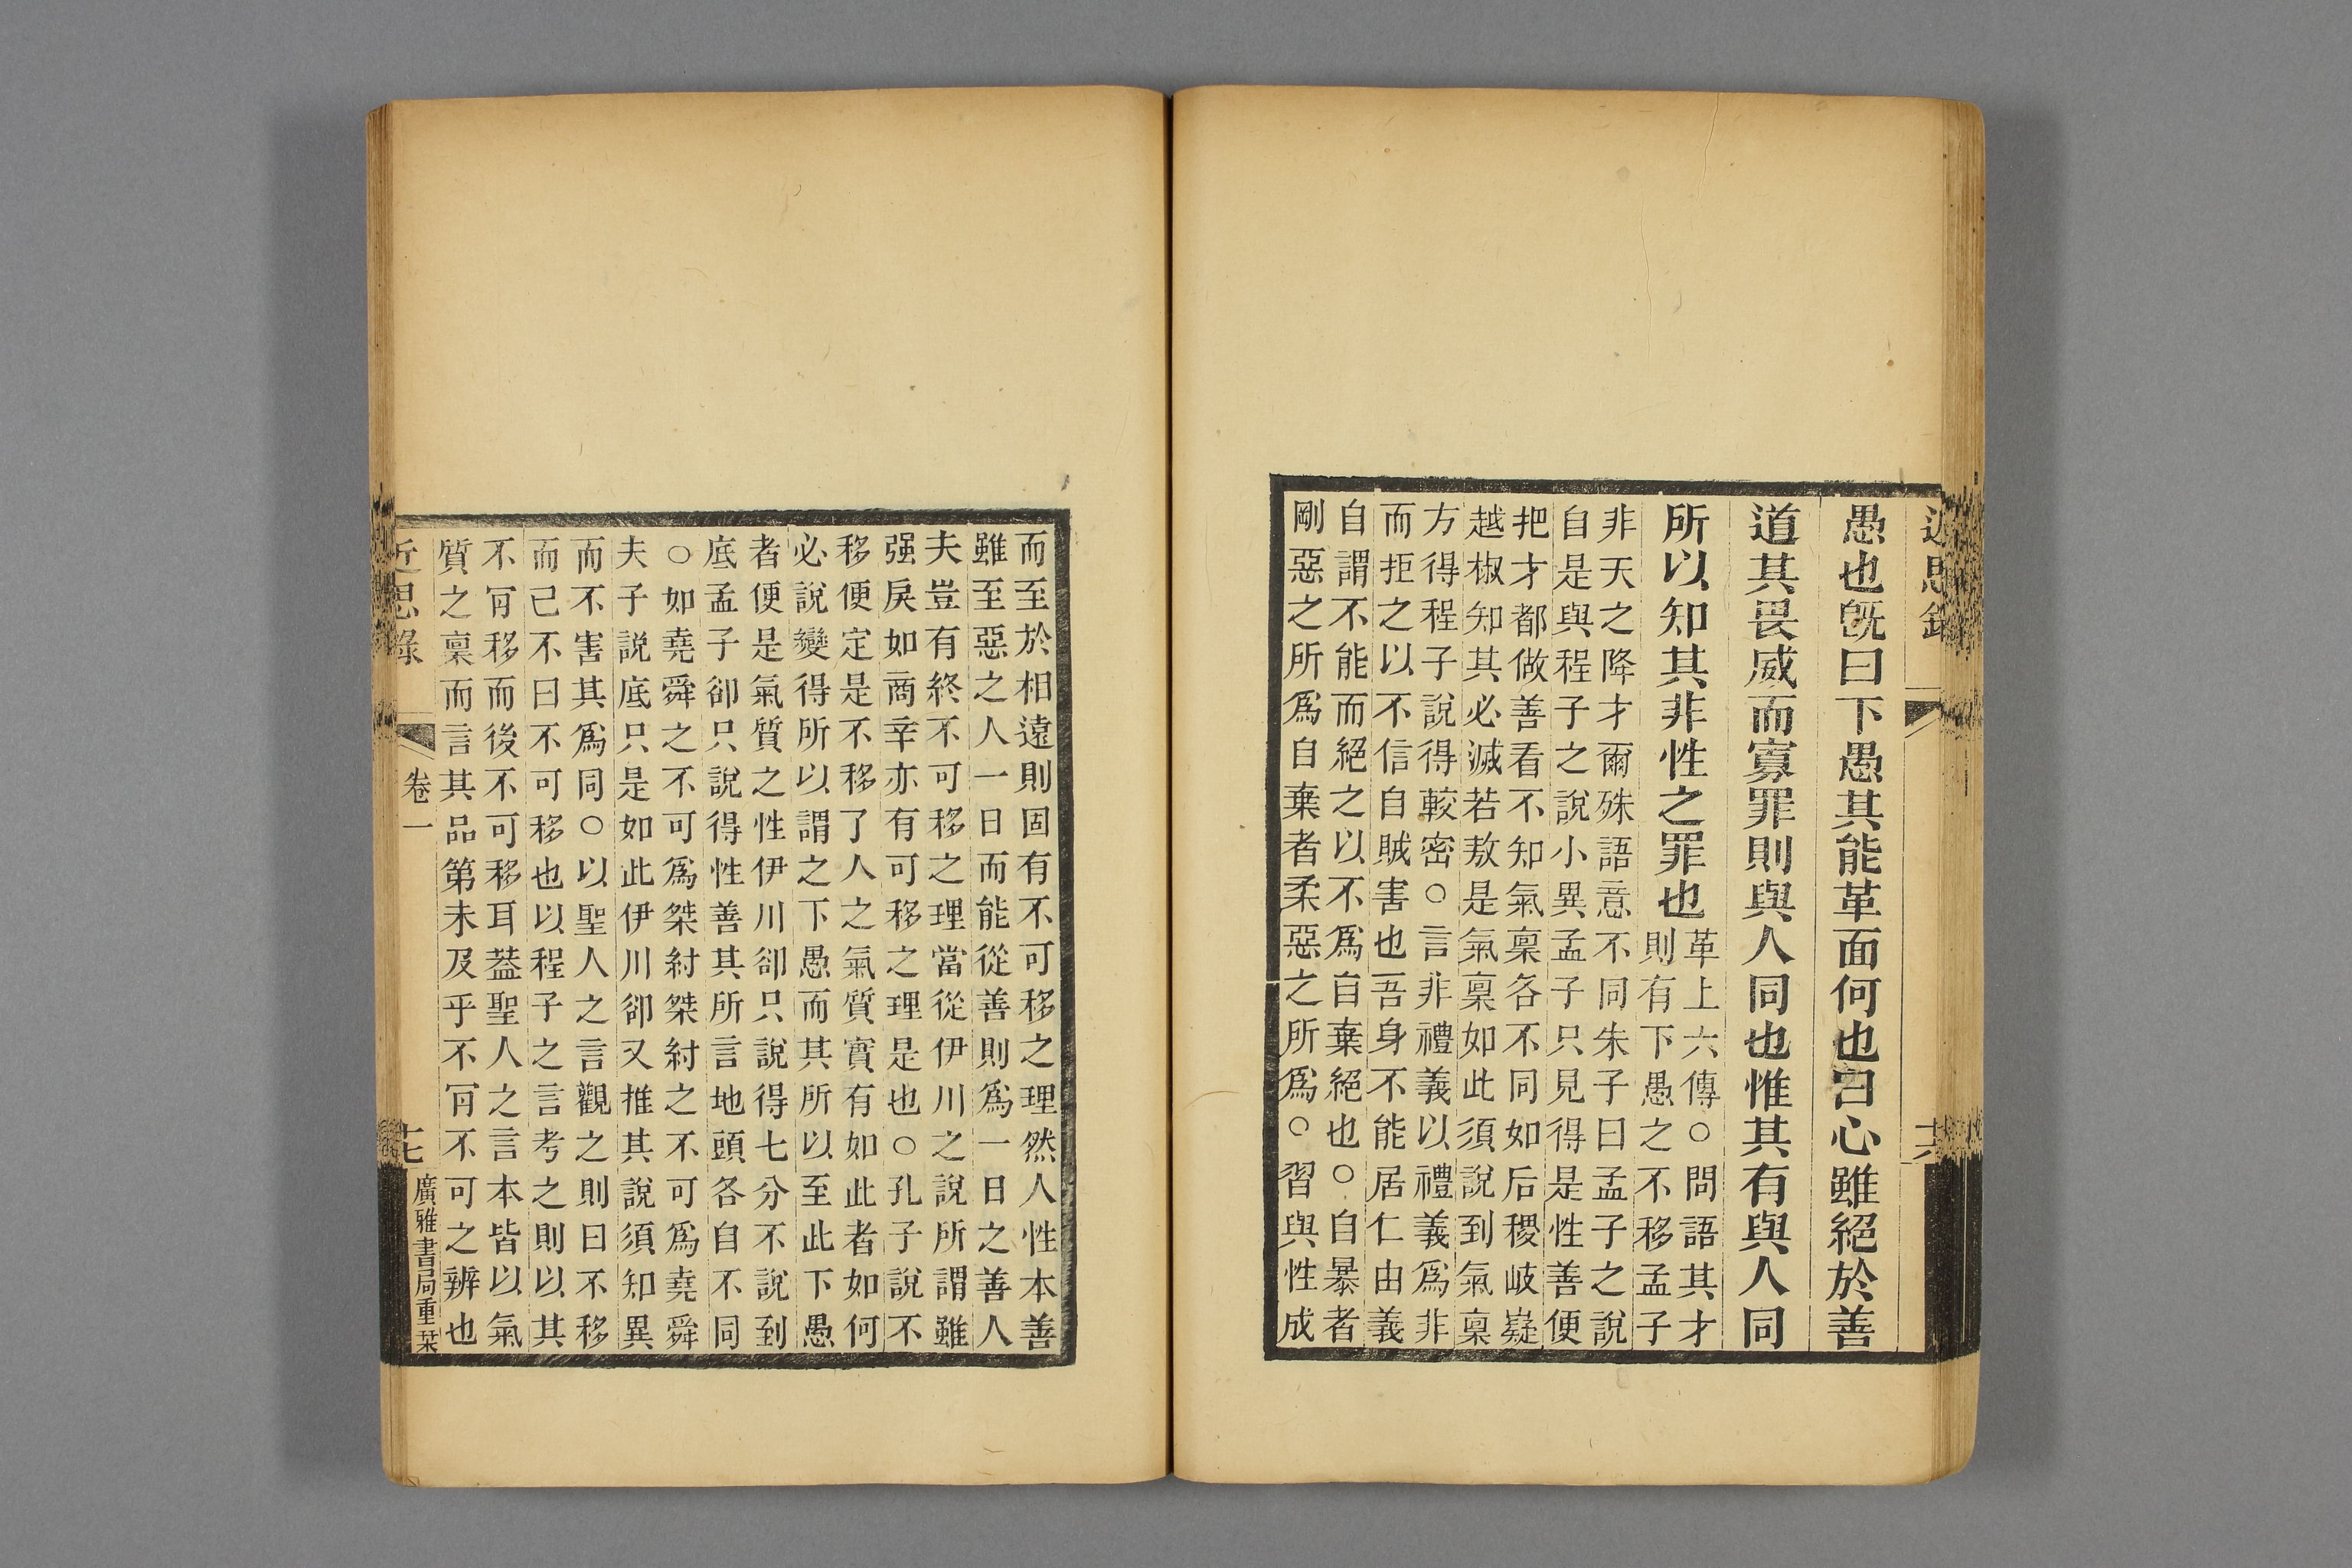 近思錄
十六
愚也旣曰下愚其能革面何也曰心雖絕於善
道其畏威而寡罪則與人同也惟其有與人同
所以知其非性之罪也
革上六傳○問語其才
則有下愚之不移孟子
非天之降才爾殊語意不同朱子曰孟子之說
自是與程子之說小異孟子只見得是性善便
把才都做善看不知氣稟各不同如后稷岐嶷
越椒知其必滅若敖是氣稟如此須說到氣稟
方得程子說得較密○言非禮義以禮義爲非
而拒之以不信自賊害也吾身不能居仁由義
自謂不能而絕之以不爲自棄絕也○自暴者
剛惡之所爲自棄者柔惡之所爲○習與性成
而至於相遠則固有不可移之理然人性本善
雖至惡之人一日而能從善則爲一日之善人
夫豈有終不可移之理當從伊川之說所謂雖
强戾如商辛亦有可移之理是也○孔子說不
移便定是不移了人之氣質實有如此者如何
必說變得所以謂之下愚而其所以至此下愚
者便是氣質之性伊川卻只說得七分不說到
底孟子卻只說得性善其所言地頭各自不同
○如堯舜之不可爲桀紂桀紂之不可爲堯舜
夫子說底只是如此伊川卻又推其說須知異
而不害其爲同○以聖人之言觀之則曰不移
而已不曰不可移也以程子之言考之則以其
不肎移而後不可移耳葢聖人之言本皆以氣
質之稟而言其品第未及乎不肎不可之辨也
近思錄
卷一
十七
廣雅書局重栞